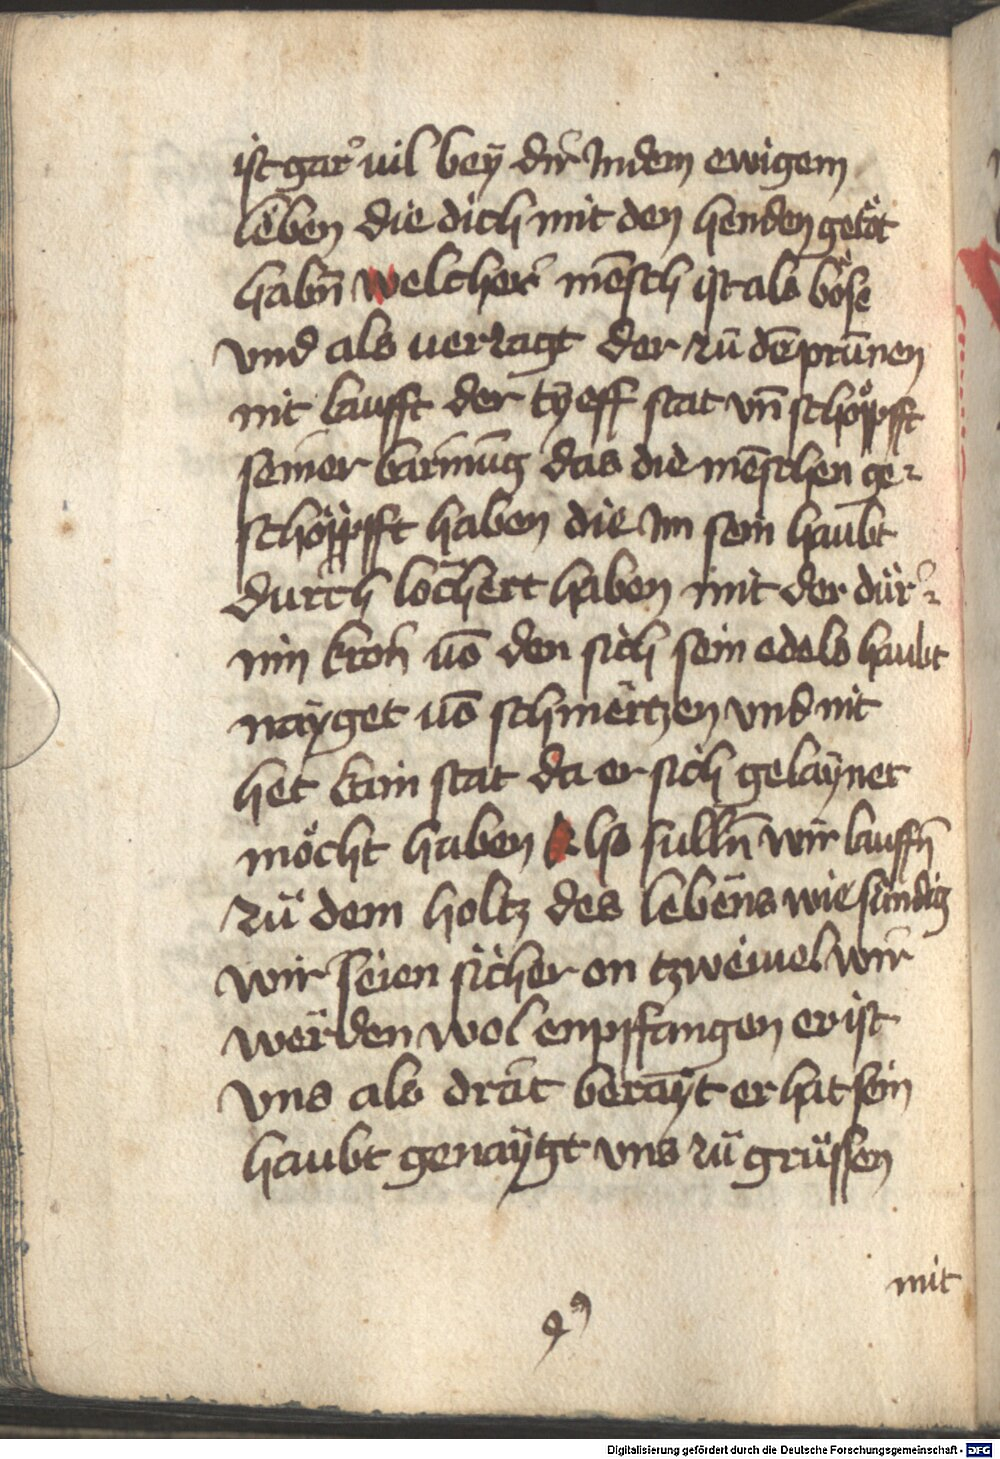 ist gar vil bey dir Indem ewigem
leben die dich mit den henden getöt
habn̄ welcher mēsch ist als böse
vnd als uerzagt der zū dē prūnen
nit laufft der tyeff stat vn̄ schöpfft
seiner barmūg das die mēschen ge⸗
schöpfft haben die Im sein haubt
durch löchert haben mit der dür⸗
nin kron uō den sich sein edels haubt
nayget uō schmertzen vnd nit
het kain stat da er sich gelaynet
möcht haben Also sulln̄ wir lauffn̄
zü dem holtz des lebens wie sündig
wir seien sicher on tzweiuel wir
werden wol enpffangen er ist
vns als drat berayt er hat sein
haubt genaygt vns zü grüssen
mit
Digitalisierung gefördert durch die Deutsche Forschungsgemeinschaft - DFG